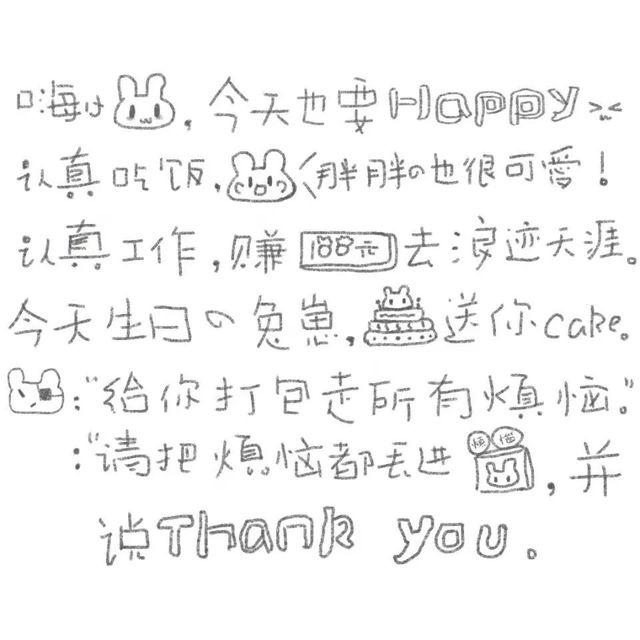 嗨い，今天也要Happy><
认真吃饭，胖胖の也很可愛！
认真工作，赚100元去浪迹天涯。
今天生日の兔崽，送你cake。
：“给你打包走所有烦恼。”
：“请把烦恼都丢进烦恼，并
说Thank you.